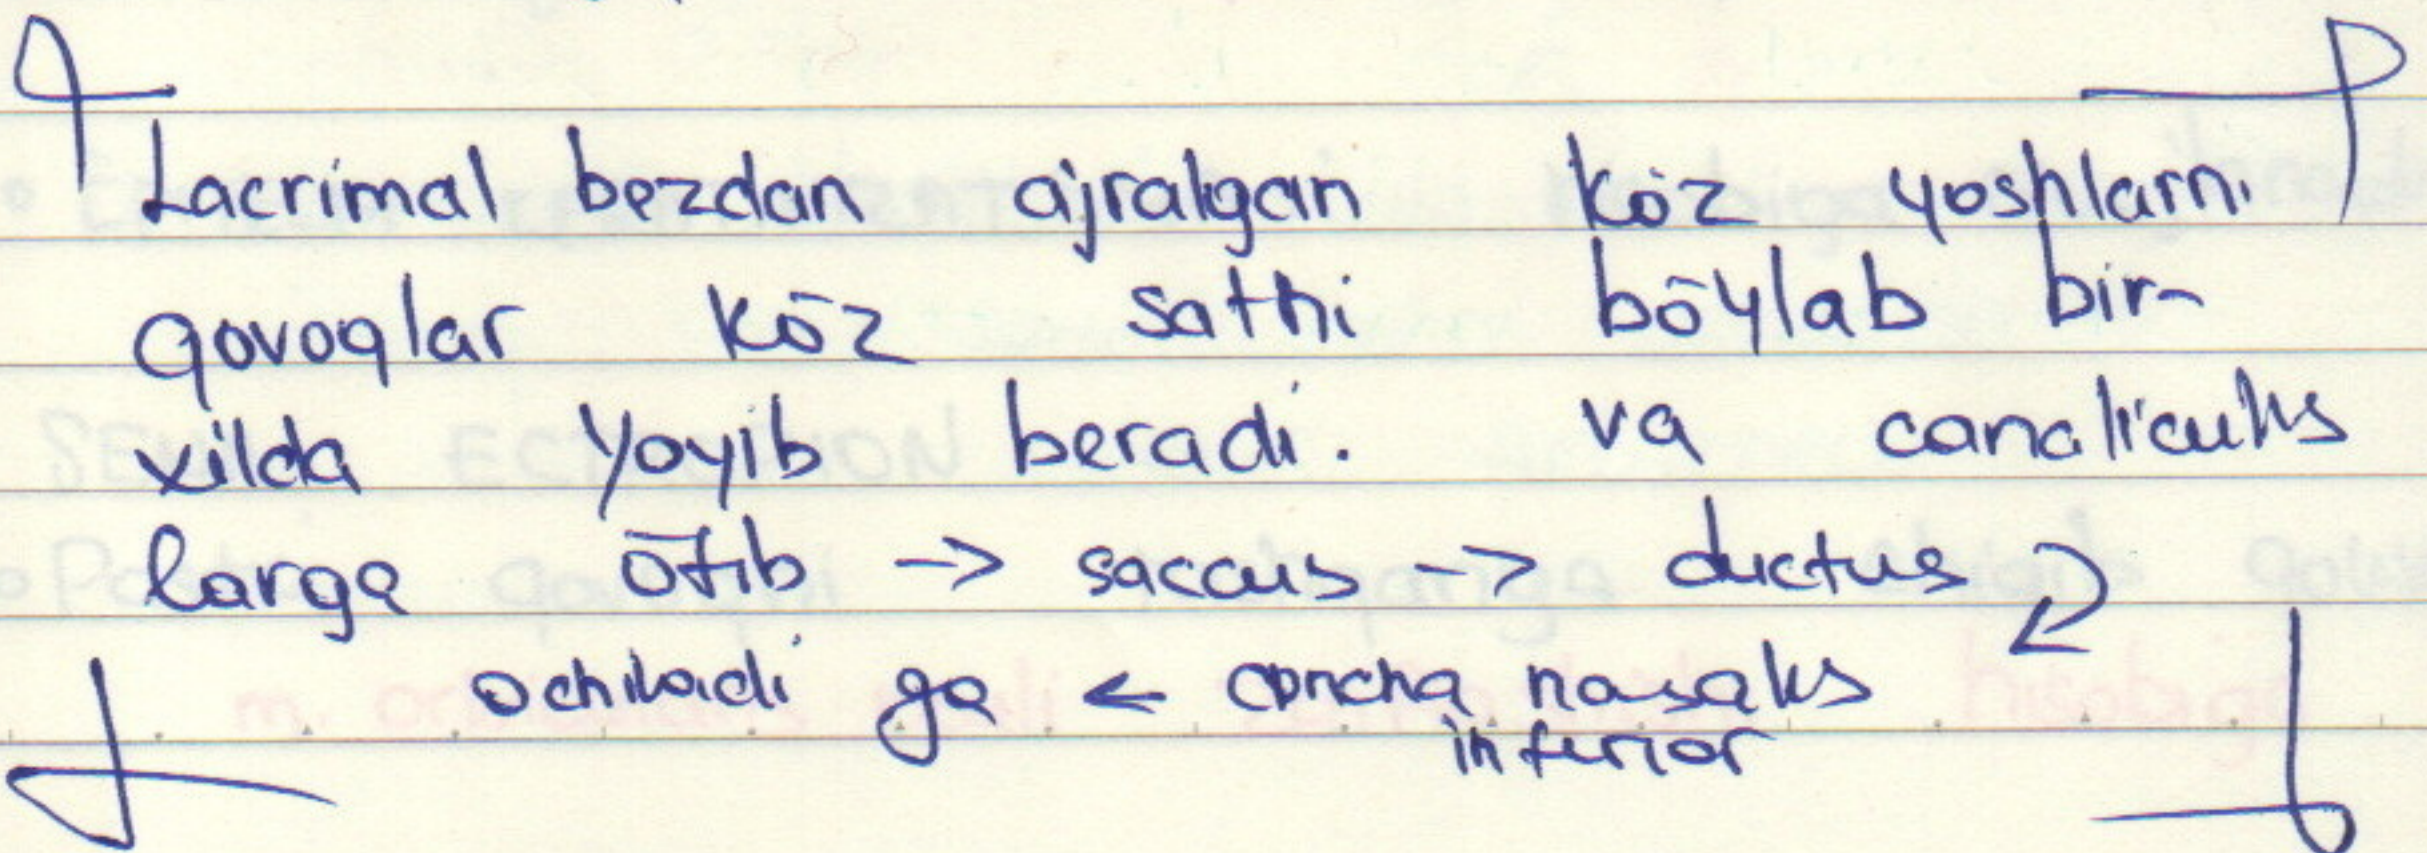 Lacrimal bezdan ajralgan kōz yoshlarni
qovoqlar kōz sathi bōylab bir-
xilda yoyib beradi. va canaliculus
larga ōtib -> saccus -> ductus ↙
ochiladi ga ← concha nasalis
inferior